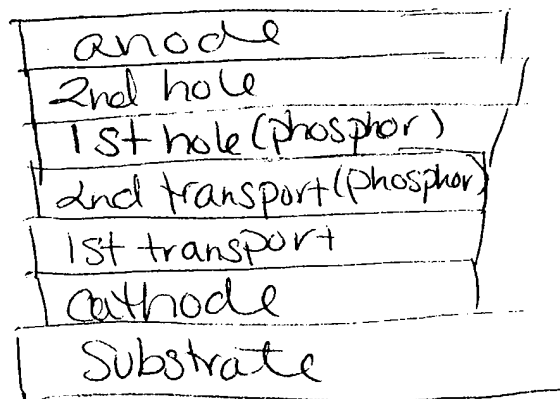 anode
2nd hole
1st hole (phosphor)
2nd transport (phosphor)
1st transport
Cathode
Substrate